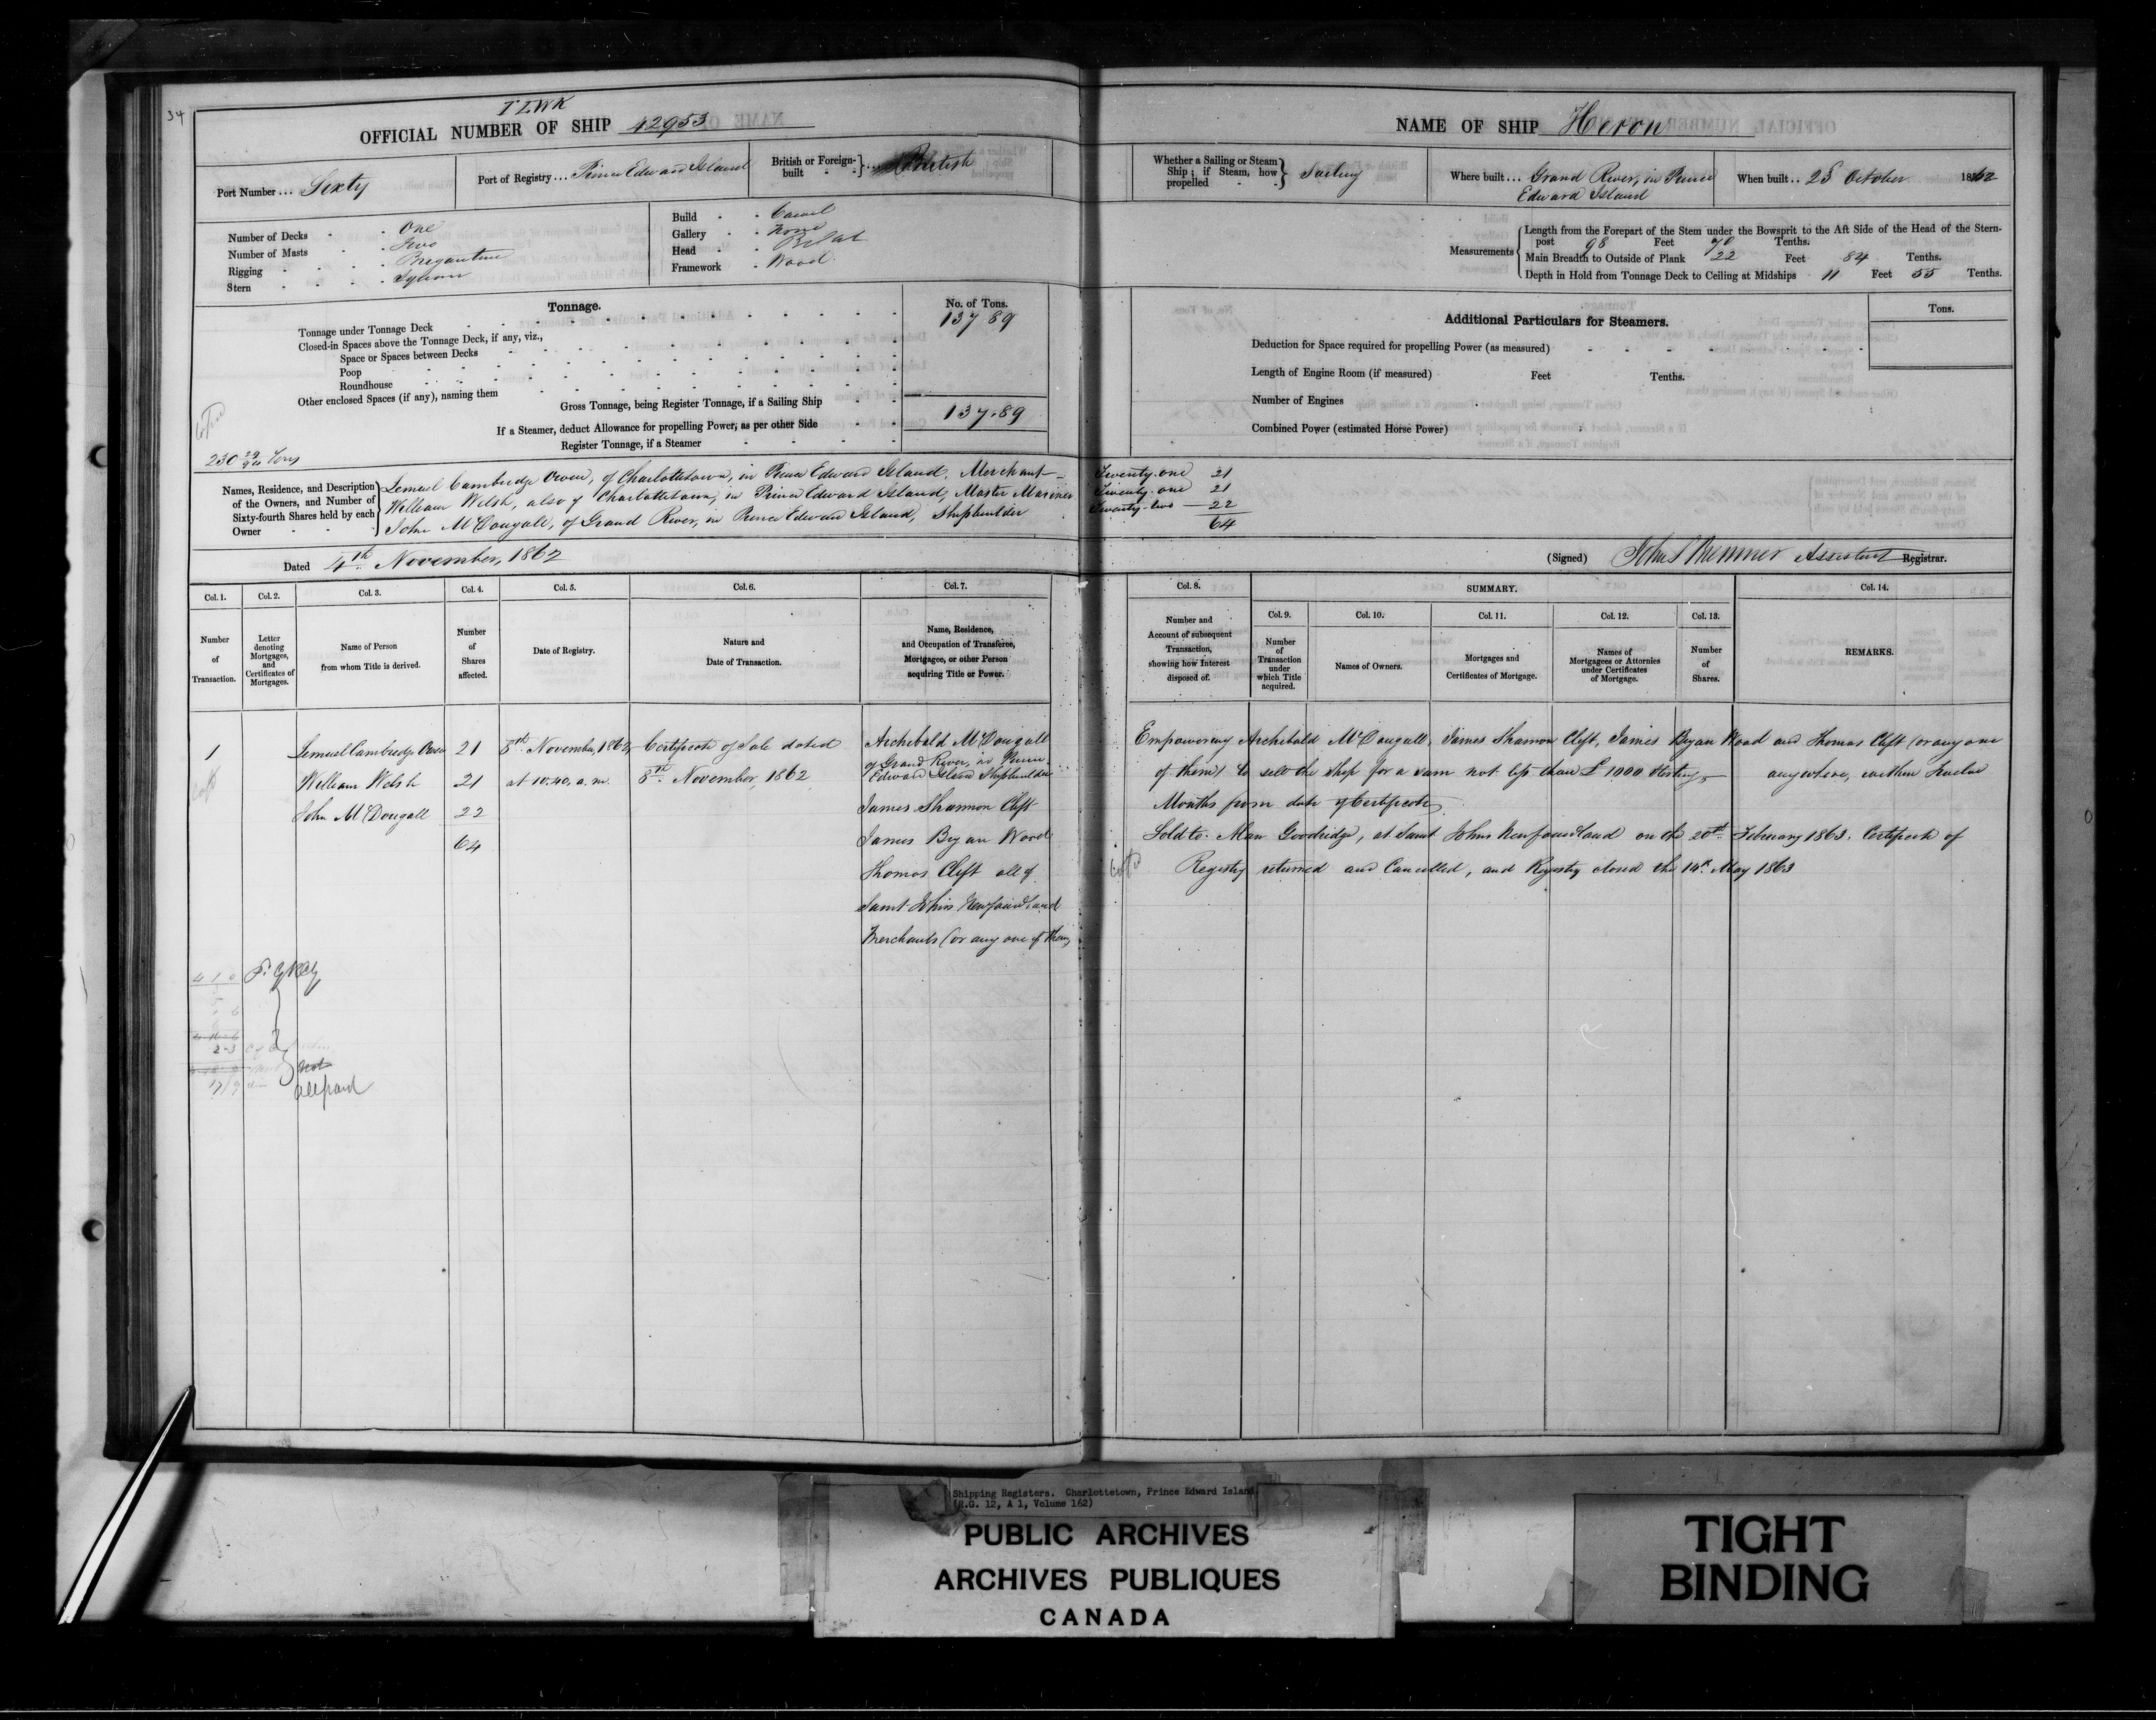 34
TLWK
OFFICIAL NUMBER OF SHIP 42953
Port Number ... Sixty
Port of Registry ... Prince Edward Island
British or Foreign-built } ... British
Number of Decks - One
Number of Masts - Two
Rigging - Brigantine
Stern - Square
Build - Carvel
Gallery - None
Head - Billet
Framework - Wood
Tonnage.
No. of Tons.
Tonnage under Tonnage Deck 137 89
Closed-in Spaces above the Tonnage Deck, if any, viz.,
Space or Spaces between Decks
Poop
Roundhouse
Other enclosed Spaces (if any), naming them
Gross Tonnage, being Register Tonnage, if a Sailing Ship 137.89
If a Steamer, deduct Allowance for propelling Power, as per other Side
Register Tonnage, if a Steamer
230 Tons
Names, Residence, and Description of the Owners, and Number of Sixty-fourth Shares held by each Owner
Lemuel Cambridge Owen, of Charlottetown, in Prince Edward Island, Merchant - Twenty-one 21
William Welsh, also of Charlottetown, in Prince Edward Island, Master Mariner Twenty-one 21
John McDougall, of Grand River, in Prince Edward Island, Shipbuilder Twenty-two - 22
64
Dated 4th November, 1862
NAME OF SHIP Heron
Whether a Sailing or Steam Ship; if Steam, how propelled } Sailing
Where built ... Grand River, in Prince
Edward Island
When built .. 25 October 1862
Measurements
Length from the Forepart of the Stem under the Bowsprit to the Aft Side of the Head of the Stern-
post 98 Feet 70 Tenths.
Main Breadth to Outside of Plank 22 Feet 84 Tenths.
Depth in Hold from Tonnage Deck to Ceiling at Midships 11 Feet 55 Tenths.
Additional Particulars for Steamers.
Tons.
Deduction for Space required for propelling Power (as measured)
Length of Engine Room (if measured) Feet Tenths.
Number of Engines
Combined Power (estimated Horse Power)
(Signed) Assistant Registrar.
Col. 1. Col. 2. Col. 3. Col. 4. Col. 5. Col. 6. Col. 7.
Number of Transaction.
Letter denoting Mortgages, and Certificates of Mortgages.
Name of Person from whom Title is derived.
Number of Shares affected.
Date of Registry.
Nature and Date of Transaction.
Name, Residence, and Occupation of Transferee, Mortgagee, or other Person acquiring Title or Power.
Col. 8.
Number and Account of subsequent Transaction, showing how Interest disposed of.
SUMMARY.
Col. 9. Col. 10. Col. 11. Col. 12. Col. 13.
Number of Transaction under which Title acquired.
Names of Owners.
Mortgages and Certificates of Mortgage.
Names of Mortgagees or Attornies under Certificates of Mortgage.
Number of Shares.
Col. 14.
REMARKS.
1 Lemuel Cambridge Owen 21 8th November, 1862, Certificate of Sale dated Archibald McDougall
of Grand River, in Prince
Edward Island Shipbuilder
William Welsh 21 at 10.40, a.m. 8th November, 1862
John McDougall 22 James Shannon Clift
64 James Bryan Wood
Thomas Clift all of
Saint Johns Newfoundland
Merchants (or any one of them)
Empowering Archibald McDougall, James Shannon Clift, James Bryan Wood and Thomas Clift (or any one
of them) to sell the Ship for a sum not less than £1000 Sterling, anywhere, within twelve
Months from date of Certificate
Sold to Alan Goodridge, at Saint Johns Newfoundland on the 20th February 1863. Certificate of
Registry returned and Cancelled, and Registry closed the 14th May 1863
2-3
not
all paid
Shipping Registers. Charlottetown, Prince Edward Island.
(R.G. 12, A 1, Volume 162)
PUBLIC ARCHIVES
ARCHIVES PUBLIQUES
CANADA
TIGHT
BINDING